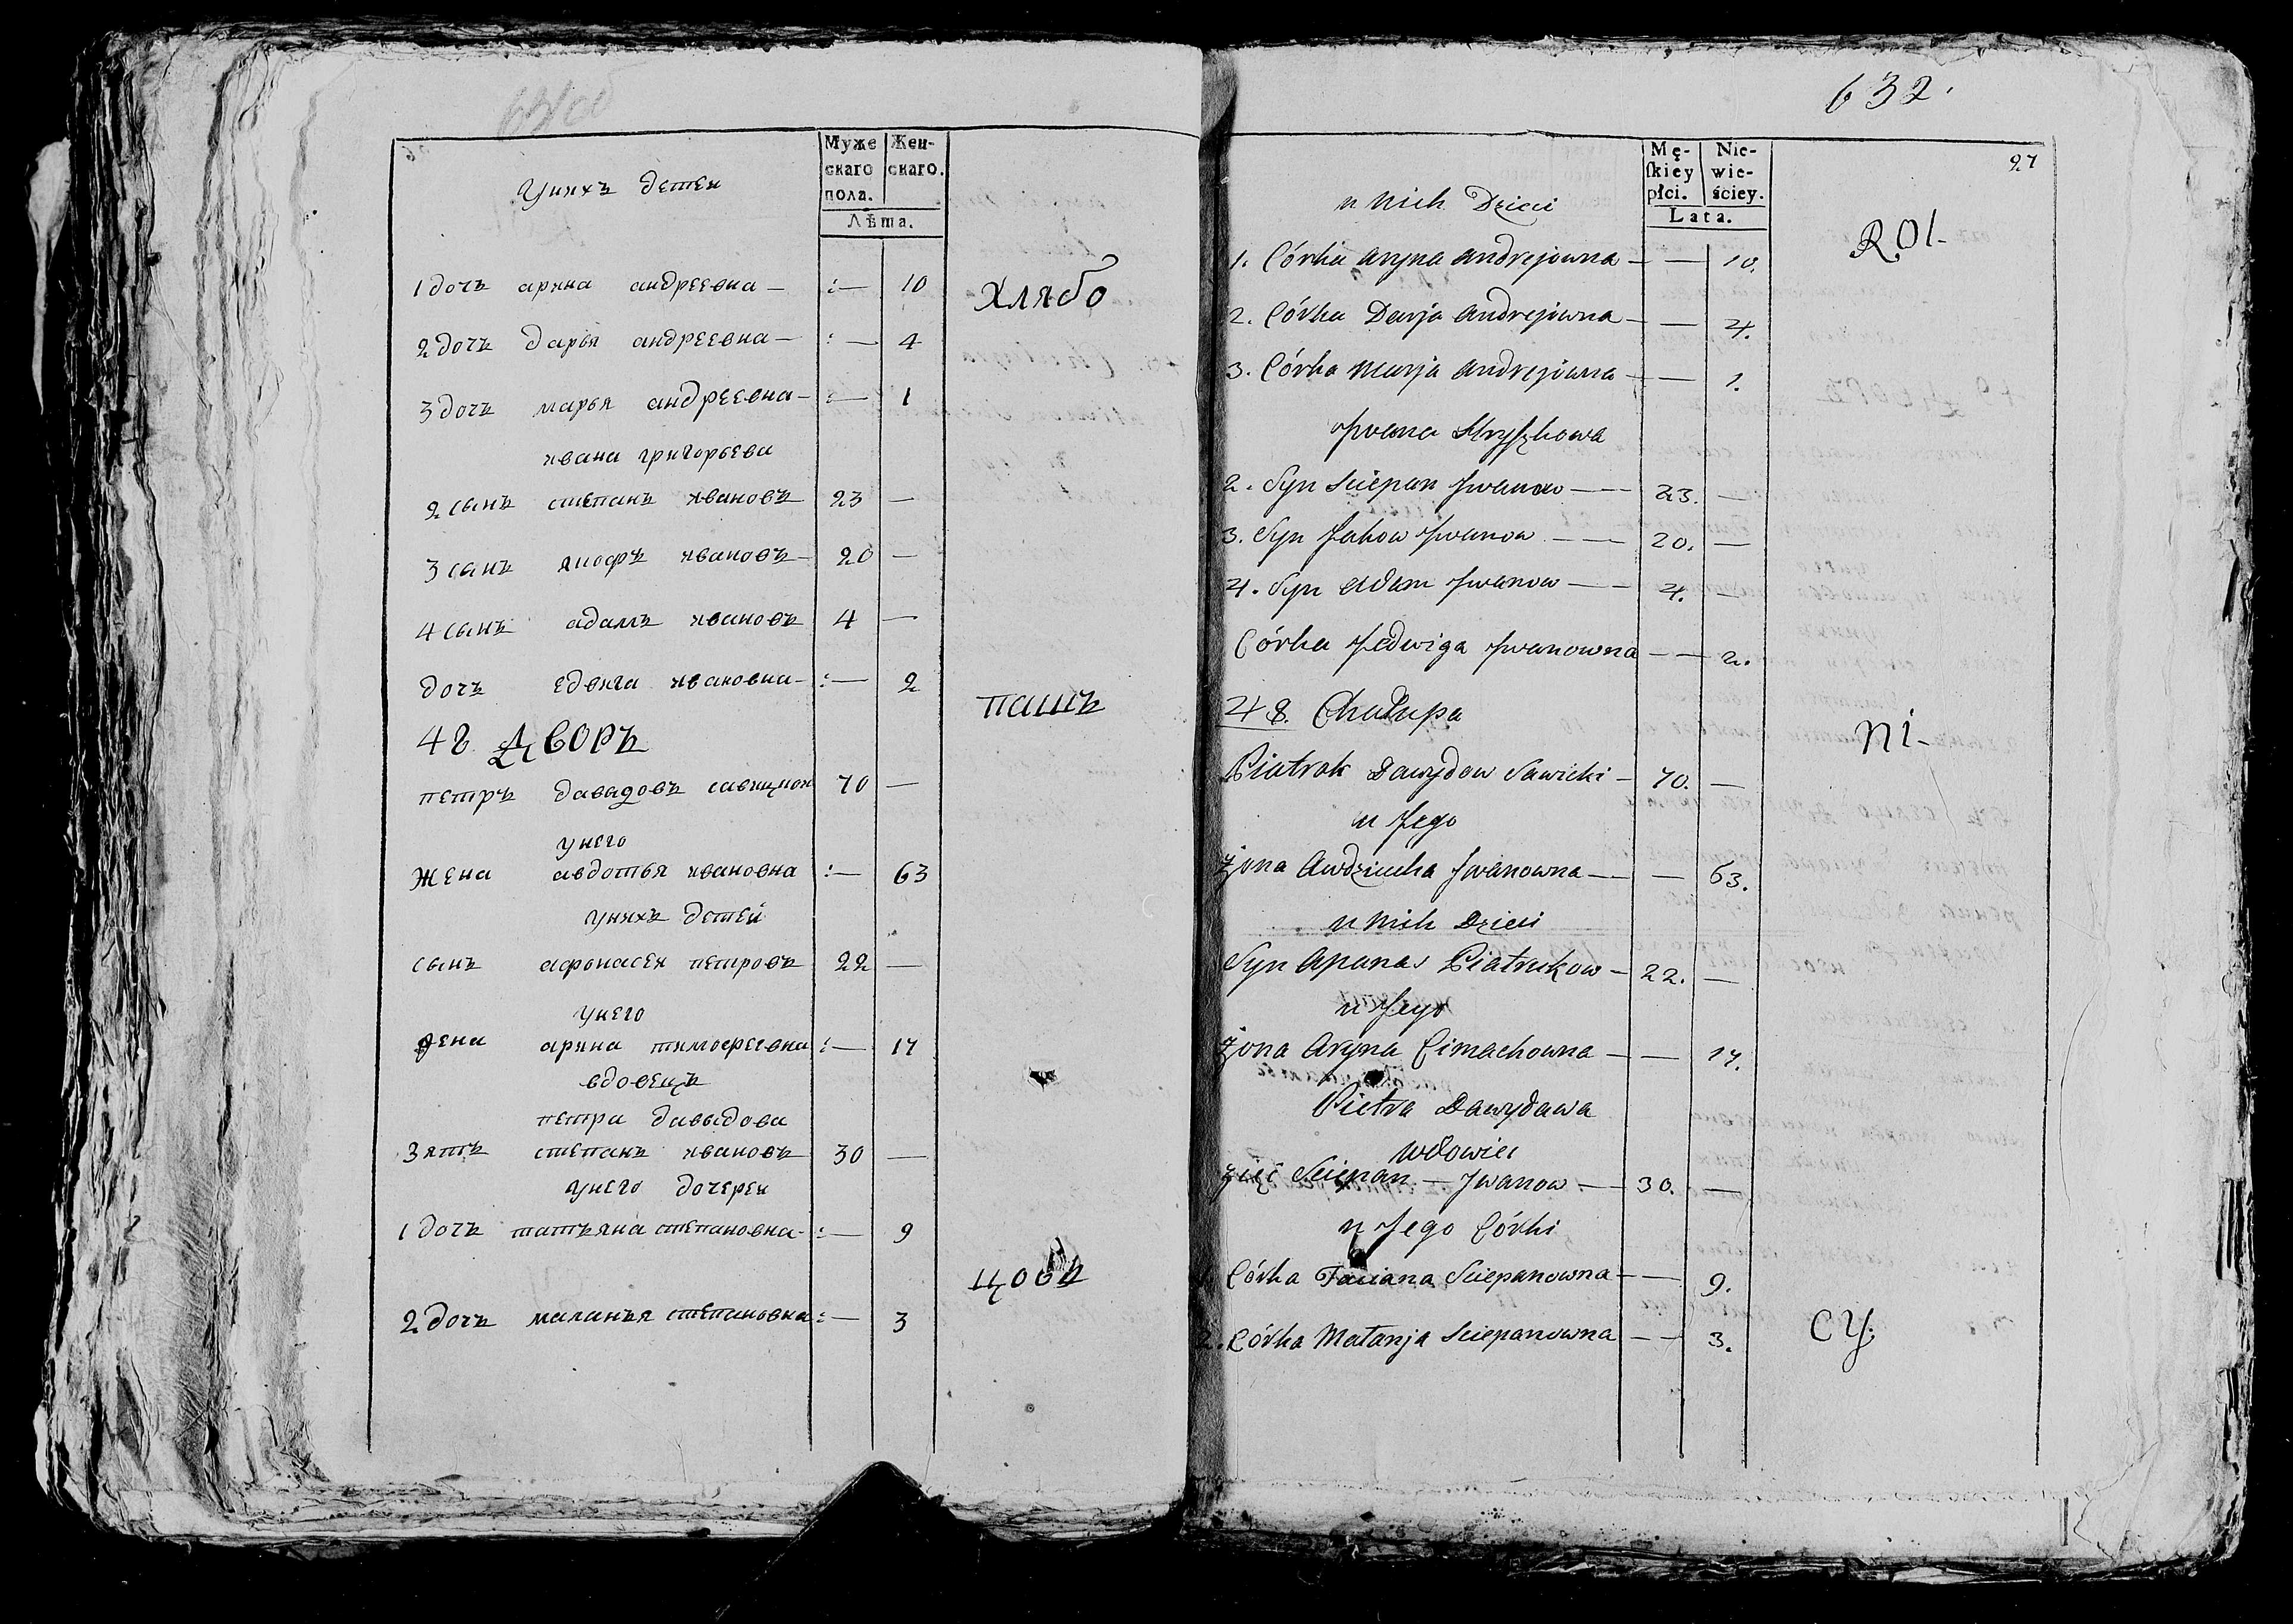 Муже
скаго
пола.
Жен-
скаго.
Лѣта.
унихъ детеи
1 дочь арина андреевна — :— 10
хлябо
2 дочь дарья андреевна — :— 4
3 дочь марья андреевна — :— 1
ивана григорьева
2 сынъ степанъ ивановъ 23 —
3 сынъ ивановъ — 20 —
4 сынъ адамъ ивановъ 4 —
дочь едвига ивановна — :— 2
пашъ
48 дворъ
петръ давыдовъ 70 —
унего
жена авдотья ивановна :— 63
унихъ детей
сынъ афонасеи петровъ 22 —
унего
жена арина тимофеевна :— 17
вдовецъ
петра давыдова
зять степанъ ивановъ 30 —
унего дочереи
1 дочь татьяна степановна — :— 9
цовъ
2 дочь маланья степановна :— 3
632.
27
Mę-
ſkiey
płci.
Nie-
wie-
ściey.
Lata.
u nich Dzieci
ROl-
1. Córka Aryna Andrejowna — — 10.
2. Córka Darja Andrejowna — — 4.
3. Córka Marja Andrejowna — — 1.
Iwana
2. Syn Sciepan Jwanow — 23. —
3. Syn Jakow Jwanow — 20. —
4. Syn Adam Jwanow — 4. —
Córka Jedwiga Jwanowna — — 2.
48. Chałupa
ni-
Piatrok Dawydow Sawicki — 70. —
u Jego
Żona Audziucha Jwanowna — — 63.
u Nich Dzieci
Syn Apanas Piatrukow — 22. —
u Jego
Żona Aryna Cimachowna — — 17.
Pietra Dawydawa
wdowiec
Zięć Sciepan — Jwanow — 30. —
u Jego Córki
Córka Taciana Sciepanowna — — 9.
cy.
2. Córka Małanja Sciepanowna — — 3.